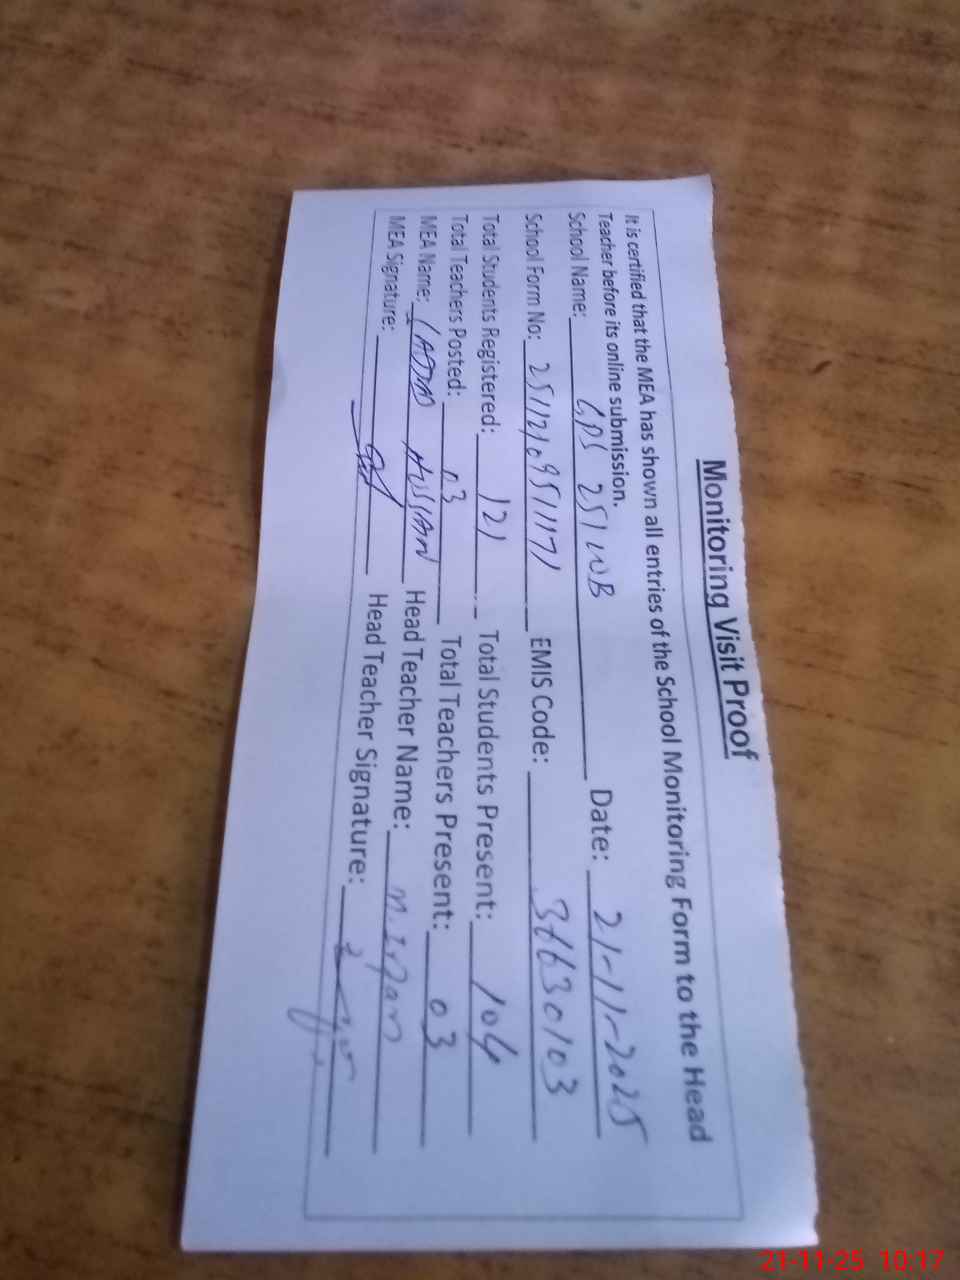 Monitoring Visit Proof
It is certified that the MEA has shown all entries of the School Monitoring Form to the Head
Teacher before its online submission.
School Name: GPS 251 WB Date: 21-11-2025
School Form No: EMIS Code: 36630103
Total Students Registered: 121 Total Students Present: 104
Total Teachers Posted: 03 Total Teachers Present: 03
MEA Name: HUSSIAN Head Teacher Name: M. Irfan
MEA Signature: Head Teacher Signature:
21-11-25 10:17